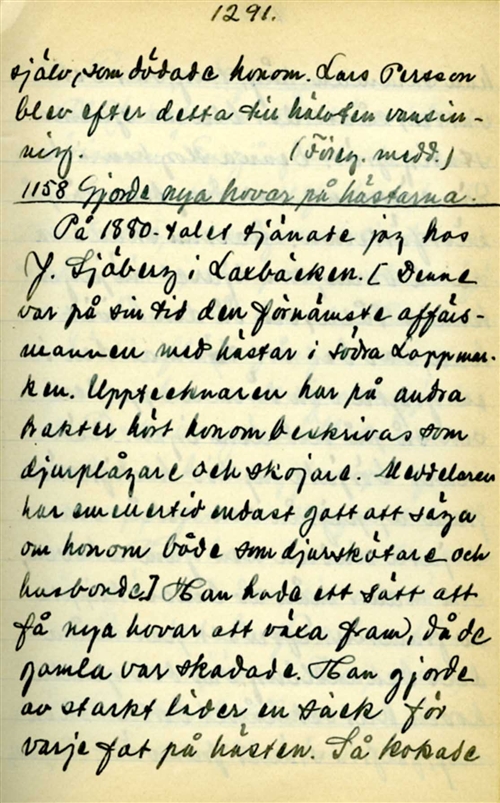 1291.
själv, som dödade honom. Lars Persson
blev efter detta till hälvten vansin-
nig. (Föreg. medd.)
1158 Gjorde nya hovar på hästarna.
På 1880-talet tjänade jag hos
J. Sjöberg i Laxbäcken. [Denne
var på sin tid den förnämste affärs-
mannen med hästar i södra Lappmar-
ken. Upptecknaren har på andra
trakter hört honom beskrivas som
djurplågare och skojare. Meddelaren
har emellertid endast gott att säga
om honom både som djurskötare och
husbonde.] Han hade ett sätt att
få nya hovar att växa fram, då de
gamla var skadade. Han gjorde
av starkt läder en säck för
varje fot på hästen. Så kokade